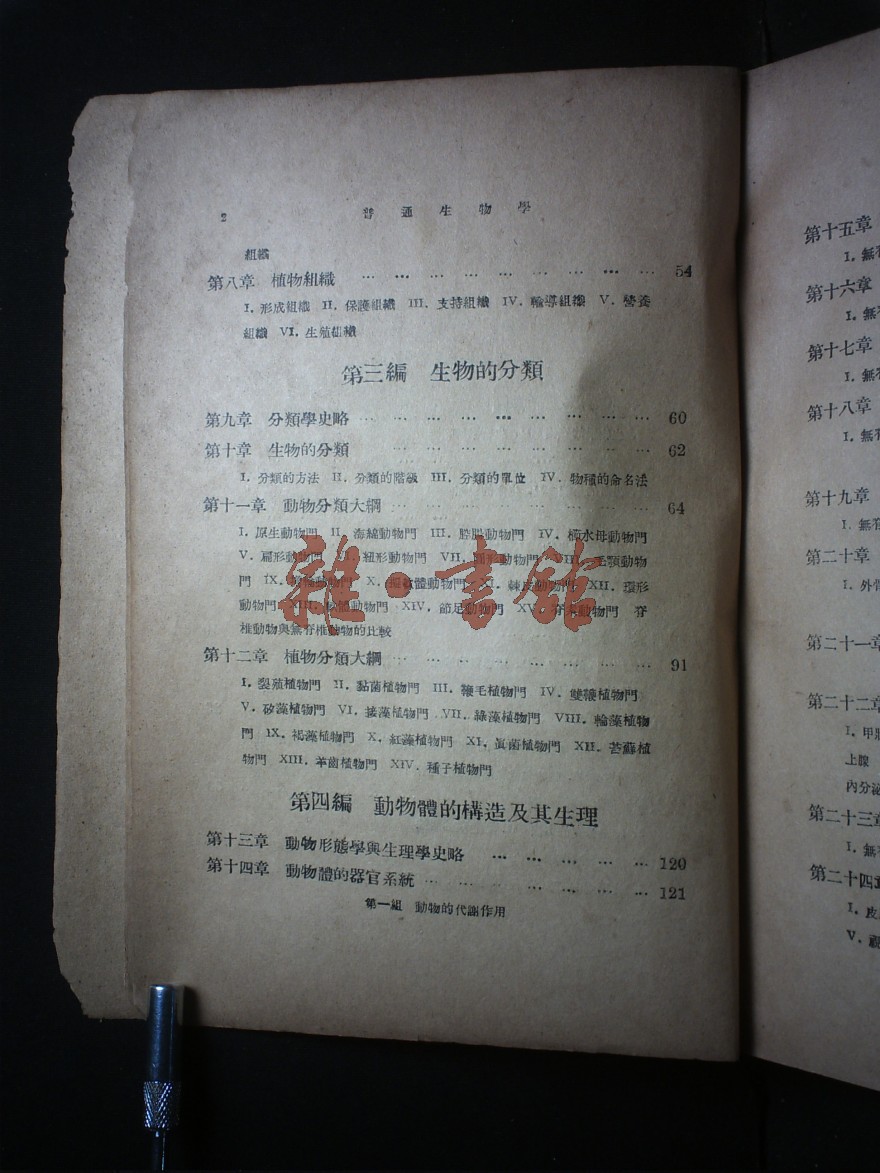 2 普通生物學
組織
第八章 植物組織 … … … … … … … … … … 54
I. 形成組織 II. 保護組織 III. 支持組織 IV. 輸導組織 V. 營養
組織 VI. 生殖組織
第三編 生物的分類
第九章 分類學史略 … … … … … … … … 60
第十章 生物的分類 … … … … … … … … 62
I. 分類的方法 II. 分類的階級 III. 分類的單位 IV. 物種的命名法
第十一章 動物分類大綱 … … … … … … … 64
I. 原生動物門 II. 海綿動物門 III. 腔腸動物門 IV. 櫛水母動物門
V. 扁形動物門 VI. 紐形動物門 VII. 圓形動物門 VIII. 毛顎動物
門 IX. 動物門 X. 擬軟體動物門 XI. 棘皮動物門 XII. 環形
動物門 XIII. 軟體動物門 XIV. 節足動物門 XV. 脊索動物門 脊
椎動物與無脊椎動物的比較
第十二章 植物分類大綱 … … … … … … … 91
I. 裂殖植物門 II. 黏菌植物門 III. 鞭毛植物門 IV. 雙鞭植物門
V. 矽藻植物門 VI. 接藻植物門 VII. 綠藻植物門 VIII. 輪藻植物
門 IX. 褐藻植物門 X. 紅藻植物門 XI. 眞菌植物門 XII. 苔蘚植
物門 XIII. 羊齒植物門 XIV. 種子植物門
第四編 動物體的構造及其生理
第十三章 動物形態學與生理學史略 … … … … … 120
第十四章 動物體的器官系統 … … … … … … … 121
第一組 動物的代謝作用
雜·書館
第十五章
I. 無脊
第十六章
I. 無
第十七章
I. 無脊
第十八章
I. 無脊
第十九章
I. 無脊
第二十章
I. 外骨
第二十一章
第二十二章
I. 甲狀
上腺
內分泌
第二十三章
I. 無
第二十四章
I. 皮
V. 視